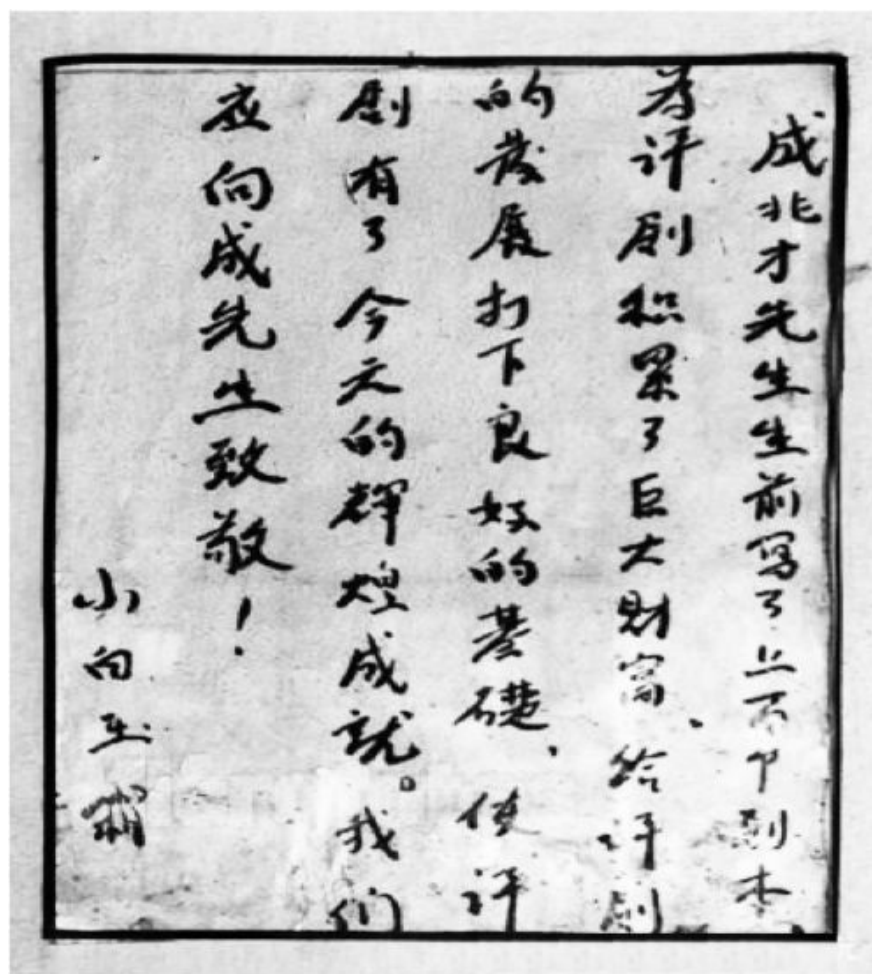 成兆才先生生前写了上百个剧本、
为评剧积累了巨大财富、给评剧
的发展打下良好的基礎、使评
剧有了今天的辉煌成就。我们
应向成先生致敬！
小白玉霜